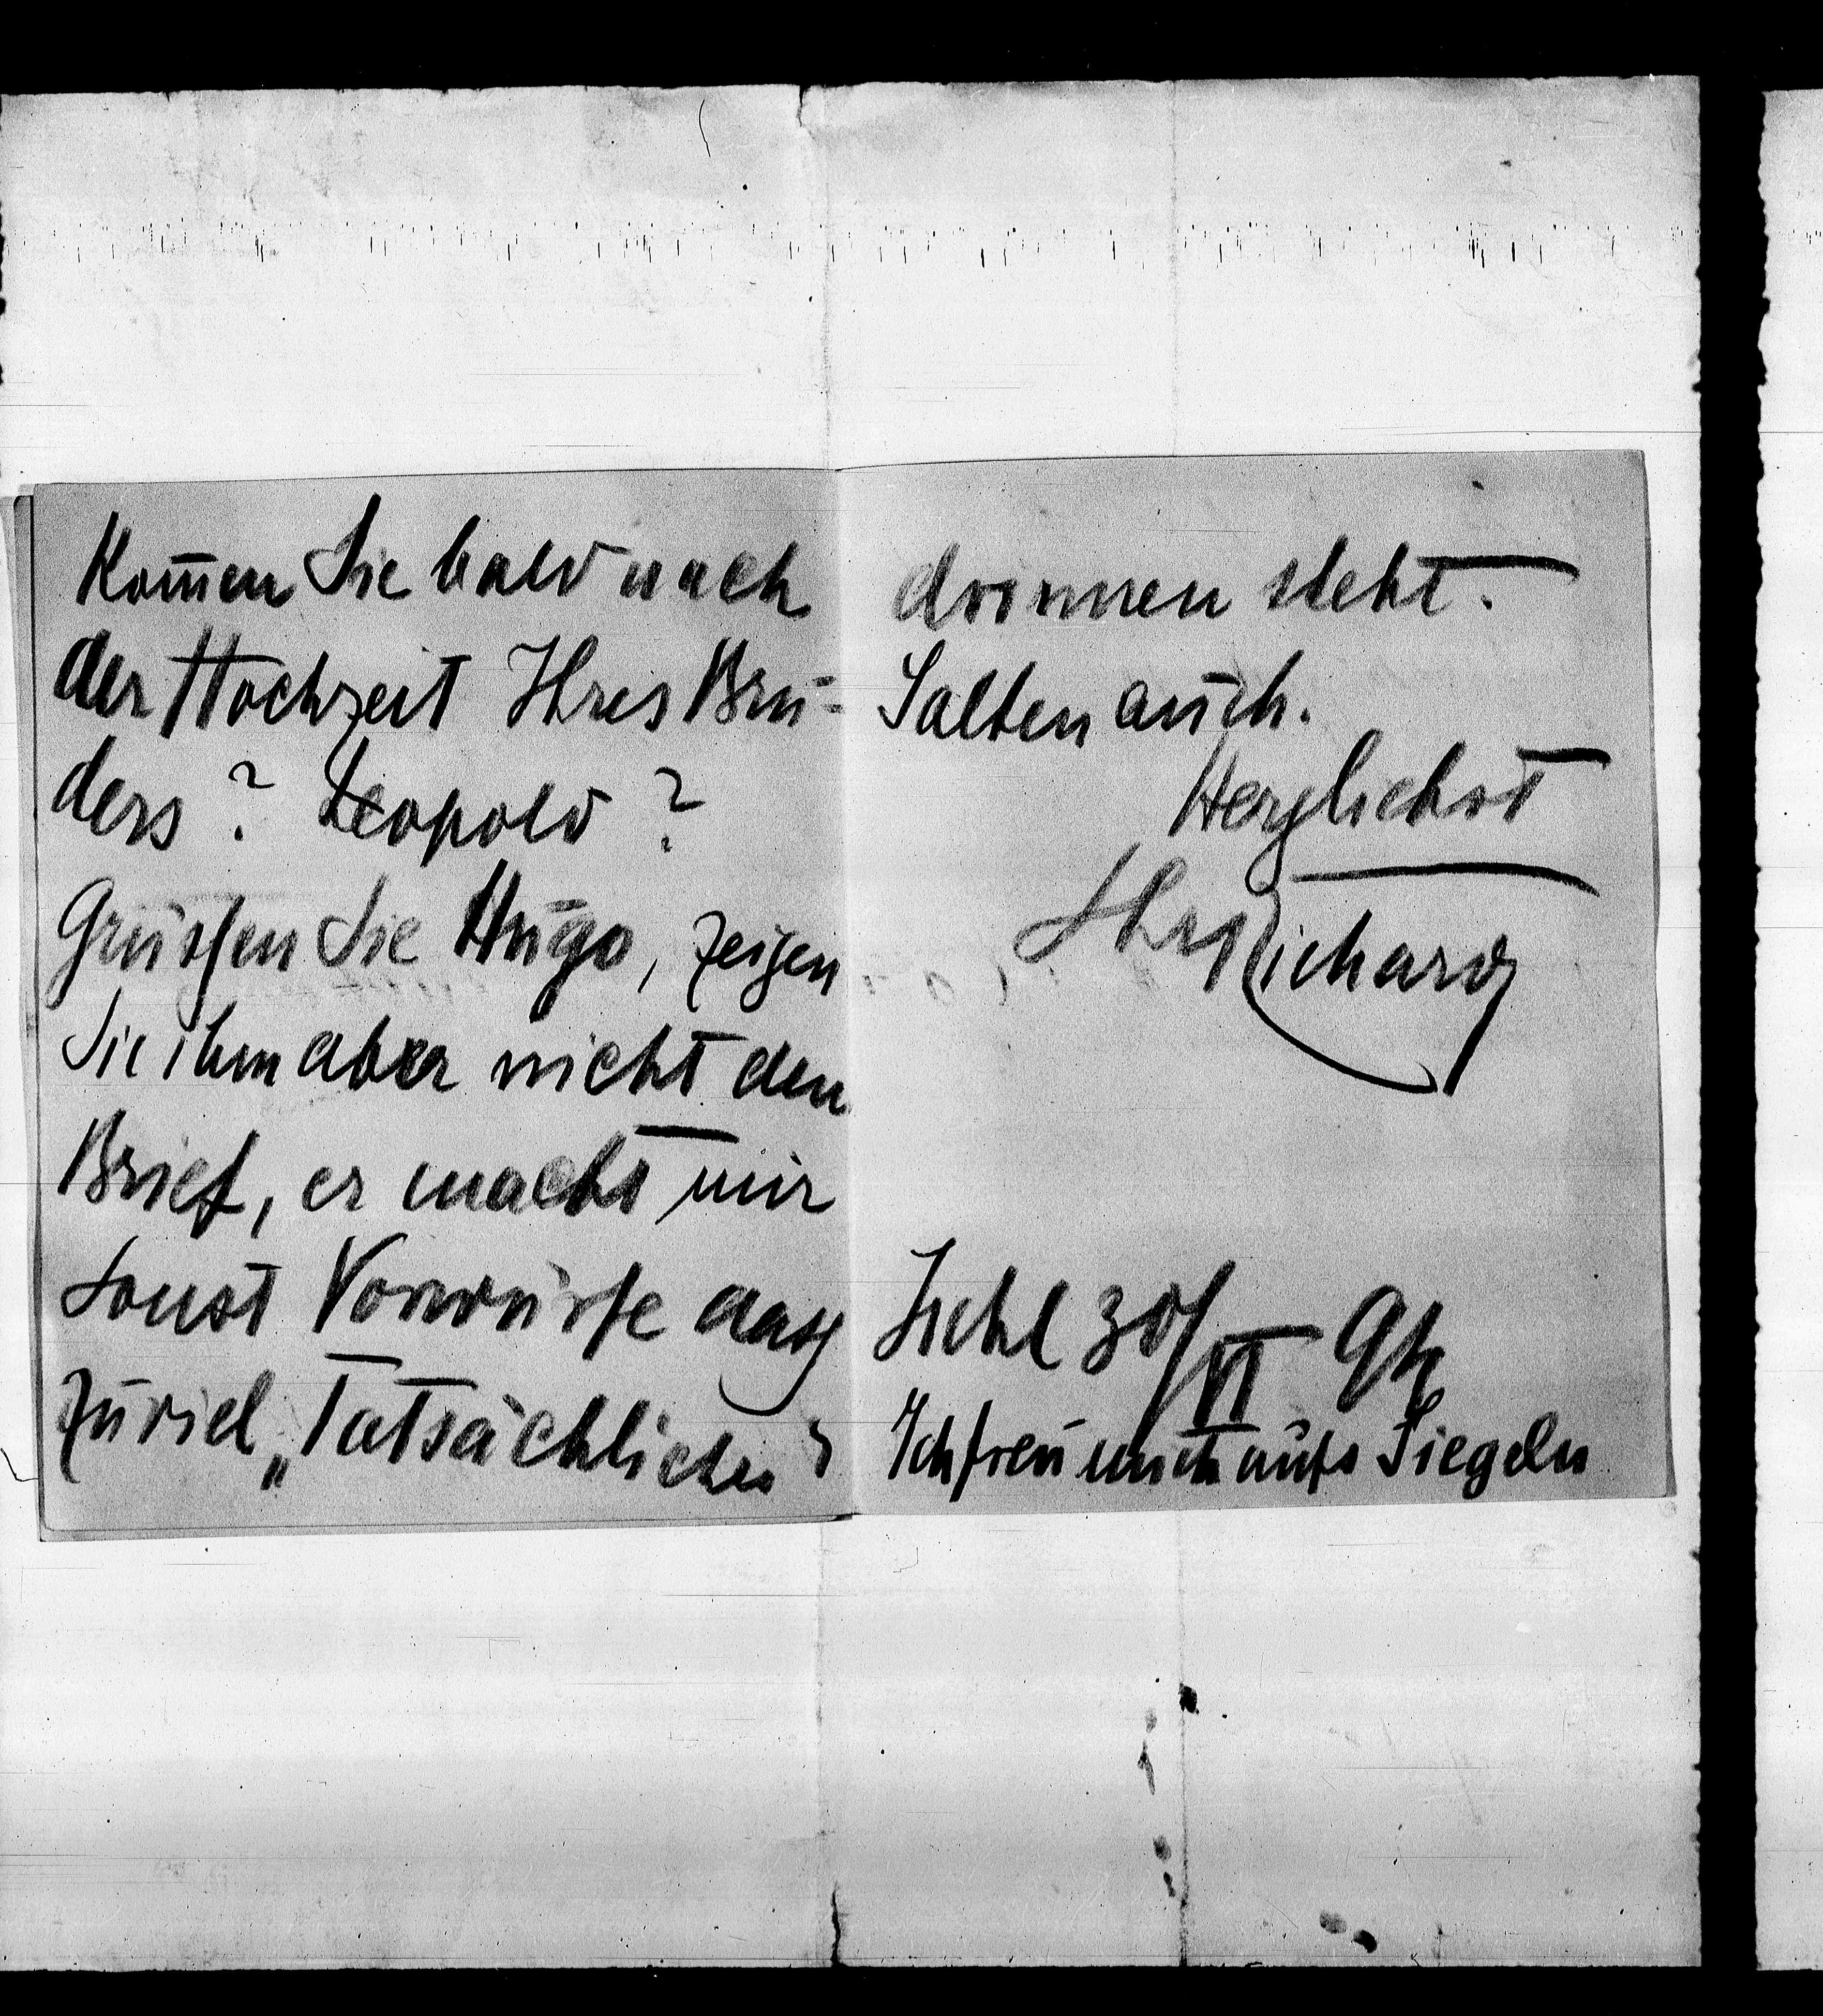 Kom̄en Sie bald nach
der Hochzeit Ihres Bru-
ders? Leopold?
Grüssen Sie Hugo, zeigen
Sie ihm aber nicht den
Brief, er macht mir
sonst Vorwürfe dass
zuviel „Tatsächliches“
drinnen steht.
Salten auch.
Herzlichst
Ihr Richard
Ischl 30/VI 94
Ich freu mich aufs Siegeln